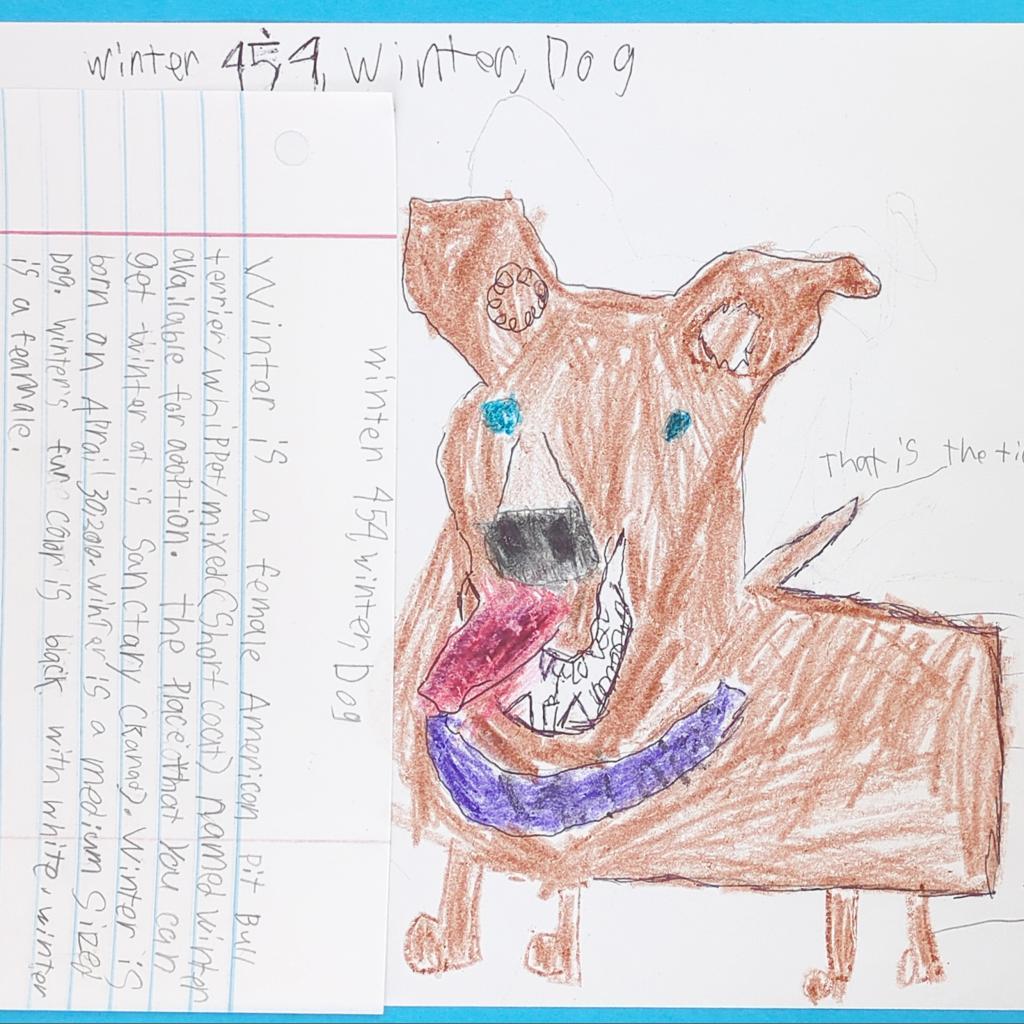 winter 454, Winter, Dog
That is the
winter 454, winter, Dog
Winter is a female American pit Bull
terrier/whipper/mixed(Short coat) named winter
available for adoption. The place that you can
get winter at is Sanctary (Kanad). Winter is
born on is a medium sized
Dog. winter's is back with white. winter
is a feamale.